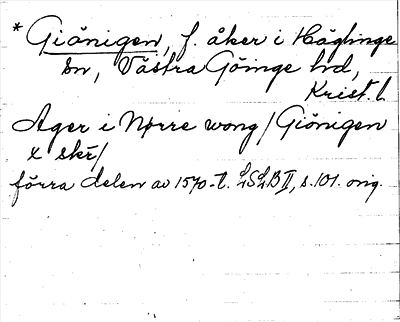 * Giönigen, f. åker i Häglinge
sn, Västra Göinge hd,
Krist. l.
Ager i Nørre wong / Giönigen
x skr /
förra delen av 1570-t. LSLB II, s. 101. orig.